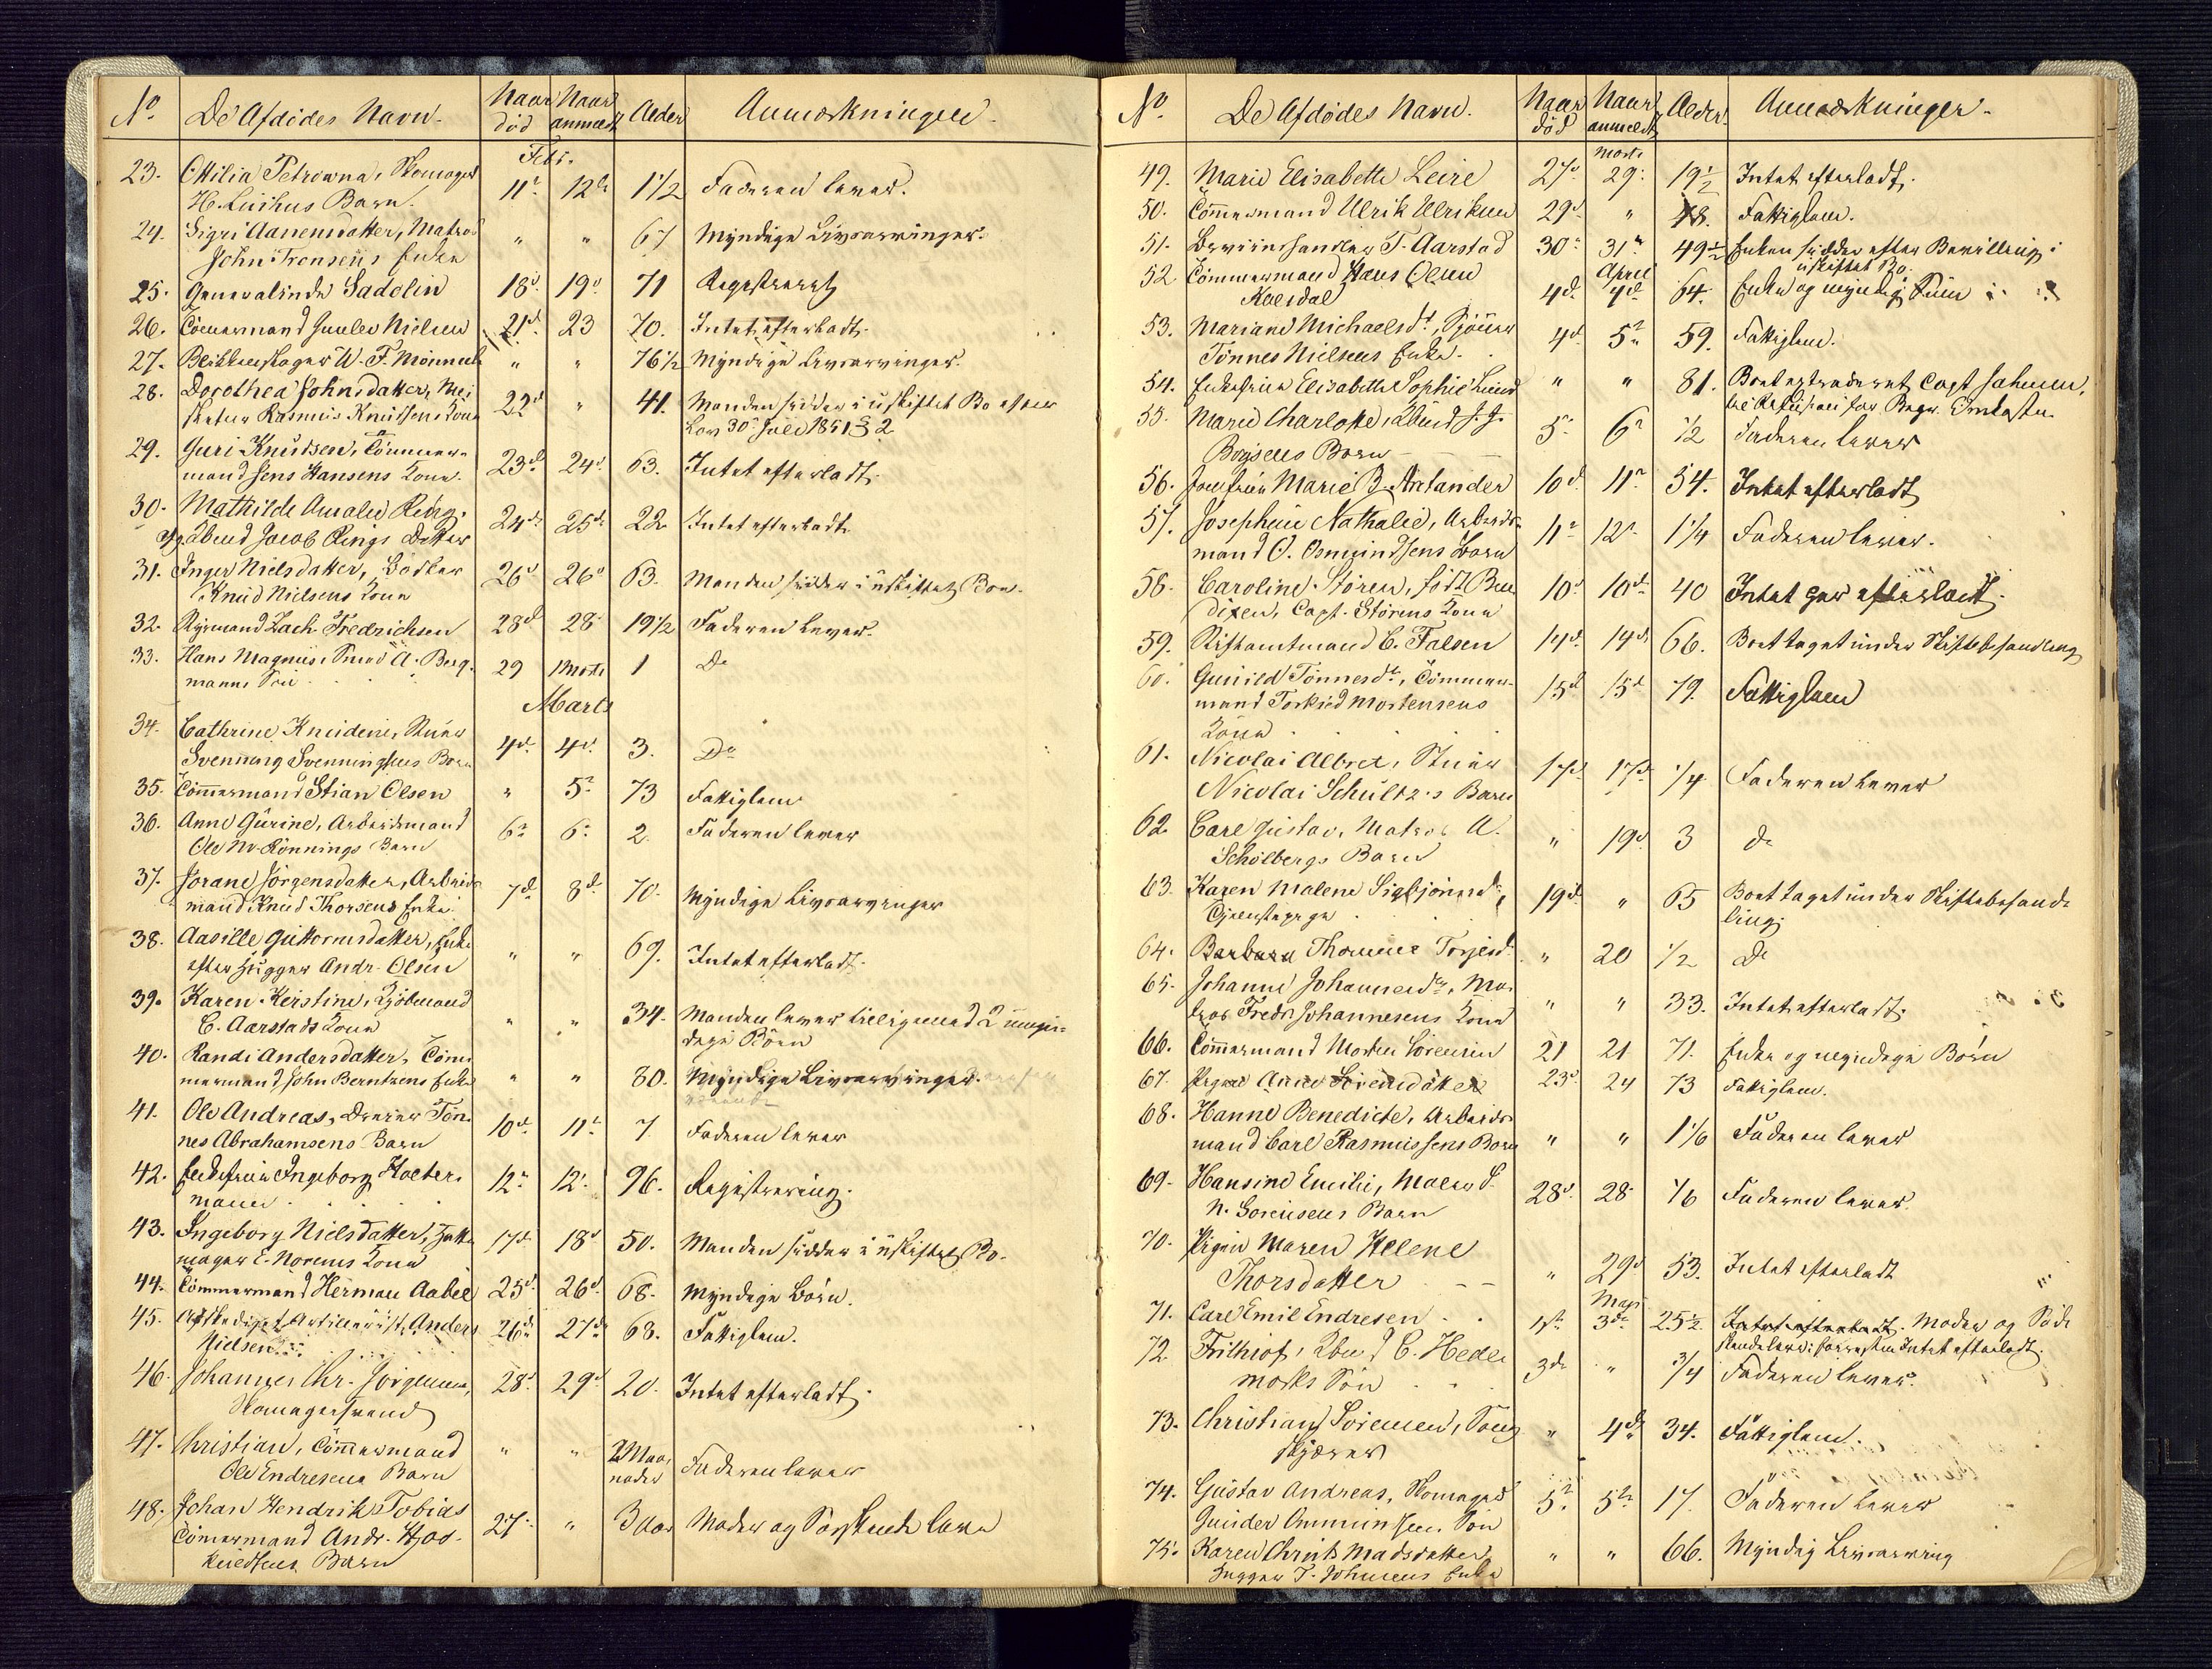 No De Afdødes Navn. Naar død Naar anmeldt Alder Anmærkninger.
Febr.
23. Ottilia Petrowna, Skomager
H. Liishus Barn. 11te 12te 1 1/2 Faderen lever.
24. Sigri Aanensdatter, Matros
John Tronsens Enke " " 67 Myndige Livsarvinger.
25. Generalinde Sadolin 18d 19d 71 Registreret
26. Tömmermand Gunder Nielsen 21d 23 70. Intet efterladt.
27. Blikkenslager W. F. " " 76 1/2 Myndige Livsarvinger.
28. Dorothea Johnsdatter,
Rasmus Knudsens Kone 22d " 41. Manden sidder i uskiftet Bo efter
Lov 30 Juli 1851 § 2
29. Guri Knudsen, Tömmer-
mand Jens Hansens Kone. 23d 24d 63. Intet efterladt.
30. Mathilde Amalie Ring.
Jacob Rings Datter 24d 25d 22. Intet efterladt
31. Inger Nielsdatter, Bödker
Knud Nielsens Kone 26d 26d 63. Manden sidder i uskiftet Bo.
32. Styrmand Zach. Fredrichsen 28d 28 19 1/2 Faderen lever.
33. Hans Magnus, Smed A. Berg-
manns Sön 29 Marts 1 Do
Marts
34. Cathrine Knudine,
Svenning Svenningsens Barn 4d 4d 3. Do
35. Tömmermand Stian Olsen " 5te 73 Fattiglem
36. Anne Gurine, Arbeidsmand
Ole Nr. Rönnings Barn 6te 6te 2. Faderen lever
37. Jorane Jörgensdatter, Arbeids-
mand Knud Thorsens Enke. 7d 8d 70. Myndige Livsarvinger
38. Aasille Guttormsdatter, Enke
efter Andr. Olsen " " 69. Intet efterladt.
39. Karen Kerstine, Kjöbmand
C. Aarstads Kone " " 34. Manden lever tilligemed 2 umyn-
dige Börn
40. Randi Andersdatter, Töm-
mermand John Berntzens Enke " " 80. Myndige Livsarvinger.
41. Ole Andreas, Dreier Tön-
nes Abrahamsens Barn 10d 11te 7 Faderen lever
42. Enkefrue Ingeborg Kolter-
mann 12te 12te 96. Registrering.
43. Ingeborg Nielsdatter, Hatte-
mager E. Norems Kone 17d 18d 50. Manden sidder i uskiftet Bo.
44. Tömmermand Herman Aabel 25d 26d 68. Myndige Börn.
45. Afskediget Artillerist Anders
Nielsen 26d 27d 68. Fattiglem.
46. Johannes Chr. Jörgensen,
Skomagersvend 28d 29d 20. Intet efterladt.
47. Christian, Tömmermand
Ole Endresens Barn " " 2 Maa-
neder Faderen lever
48. Johan Hendrik Tobias
Tömmermand Andr.
Barn 27 " 3 Aar Moder og Söskende leve
No De Afdødes Navn. Naar død Naar anmeldt Alder. Anmærkninger.
Marts
49. Marie Elisabeth Leire 27d 29 19 1/2 Intet efterladt.
50. Tömmermand Ulrik Ulriksen 29d " 48. Fattiglem.
51. T. Aarstad 30te 31te 49 1/2 Enken sidder efter Bevilling i
uskiftet Bo.
April
52. Tömmermand Hans Olsen
Kalsdal 4d 4d 64. Enke og myndig Sön
53. Mariane Michaelsdt,
Tönnes Nielsens Enke. 4d 5te 59. Fattiglem.
54. Enkefrue Elisabeth Sophie Lund " " 81. Boet extraderet Capt Salvesen,
55. Marie Charlotte, J. J.
Boysens Barn 5 6te 1/2 Faderen lever
56. Jomfrue Marie B. Arctander 10d 11te 54. Intet efterladt
57. Josephine Nathalie, Arbeids-
mand O. Osmundsens Barn 11te 12te 1 1/4 Faderen lever.
58. Caroline Stören, födt Ben-
dixen, Capt. Störens Kone 10d 10d 40 Intet efterladt.
59. Stiftamtmand C. Falsen 14d 14d 66. Boet taget under Skiftebehandling
60. Gunild Tönnesdt, Tömmer-
mand Torkild Mortensens
Kone 15d 15d 79. Fattiglem
61. Nicolai Albret,
Nicolai Schultz's Barn 17d 17d 1/4 Faderen lever
62. Carl Gustav, Matros A.
Schölbergs Barn " 19d 3 do
63. Karen Malene Sigbjörnsd.,
Tjenestepige 19d " 65 Boet taget under Skiftebehand-
ling.
64. Barbara Thomine Torjesd. " 20 1/2 Do
65. Johanne Johannesdr, Ma-
tros Fredr. Johannesens Kone " " 33. Intet efterladt.
66. Tömmermand Morten Sörensen 21 21 71. Enke og myndige Börn
67. Pigen Anne Sörensdatter 23d 24 73 Fattiglem.
68. Hanne Benedicte, Arbeids-
mand Carl Rasmussens Barn " " 1 1/6 Faderen lever
69. Hansine Emilie, Maler S.
N. Sörensens Barn 28d 28 1/6 Faderen lever.
70. Pigen Maren Helene
Thorsdatter " 29d 53. Intet efterladt
Mai
71. Carl Emil Endresen 1ste 3de 25 1/2 Intet efterladt. Moder og Sö-
skende lever; forresten Intet efterladt.
72. Frithiof, C. Hede-
marks Sön 3de " 3/4 Faderen lever.
73. Christian Sörensen, Toug-
skjærer " 4d 34. Fattiglem.
74. Gustav Andreas, Skomager
Gunder Ommundsens Sön 5te 5te 17. Faderen lever
75. Karen Christ. Madsdatter,
T. Johnsens Enke " " 66. Myndig Livsarving